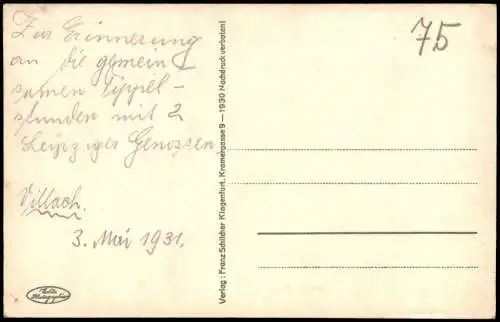 Zur Erinnerung
an die gemein
samen Tippel-
stunden mit 2
Leipziger Genossen
Villach.
3. Mai 1931.
75
Verlag: Franz Schilcher Klagenfurt, Kramergasse 9 — 1930 Nachdruck verboten!
Echte
Photographie